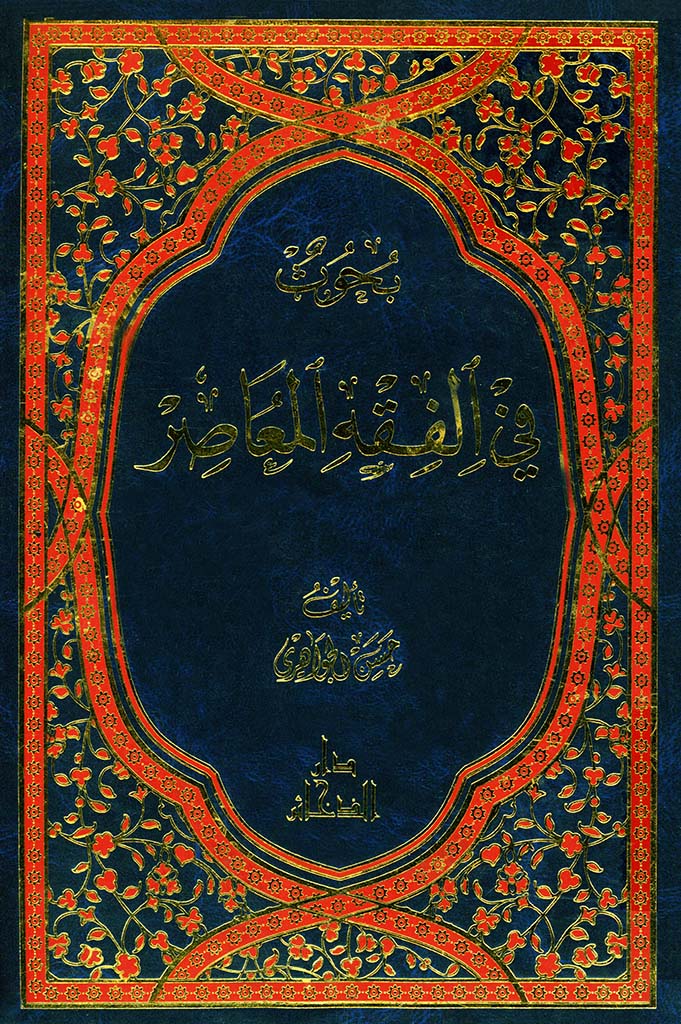 بُحُوثٌ
فِي الفِقْهِ المُعَاصِرْ
تأليف
حسن الجواهري
دار
الذخائر